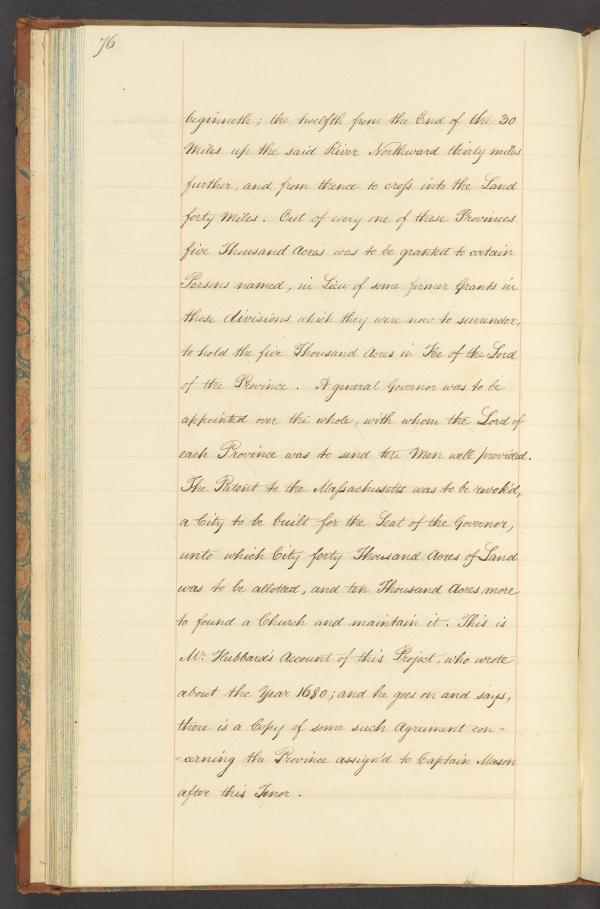 76
beginneth; the twelfth from the End of the 30
Miles up the said River Northward thirty miles
further, and from thence to cross into the Land
forty Miles. Out of every one of these Provinces
five Thousand Acres was to be granted to certain
Persons named, in Lieu of some former Grants in
those divisions which they were now to surrender,
to hold the five Thousand Acres in Fee of the Lord
of the Province. A general Governor was to be
appointed over the whole, with whom the Lord of
each Province was to send ten Men well provided.
The Patent to the Massachusetts was to be revok'd,
a City to be built for the Seat of the Governor,
unto which City forty Thousand Acres of Land
was to be allotted, and ten Thousand Acres more
to found a Church and maintain it. This is
Mr. Hubbard's Account of this Project, who wrote
about the Year 1680; and he goes on and says,
there is a Copy of some such Agreement con-
-cerning the Province assign'd to Captain Mason
after this Tenor.